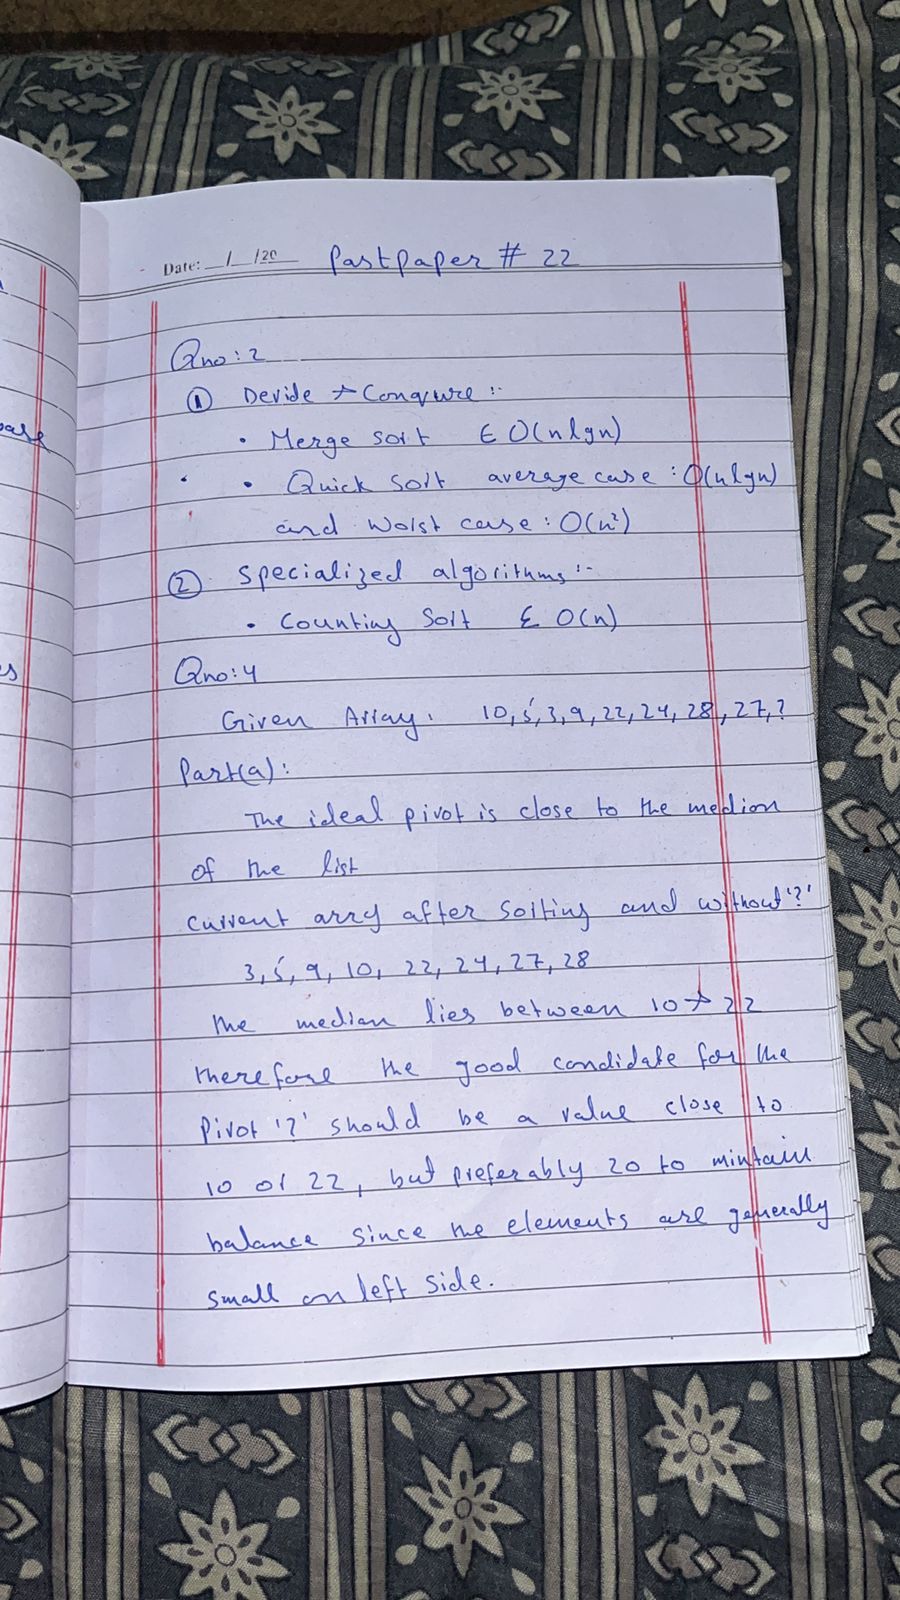 Date: __/__/20__ Pastpaper # 22
Qno:2
① Devide & Conqure :-
• Merge sort ∈ O(nlgn)
• Quick sort average case : O(nlgn)
and worst case : O(n²)
② specialized algorithms :-
• Counting Sort ∈ O(n)
Qno:4
Given Array: 10, 5, 3, 9, 22, 24, 28, 27, ?
Part(a) :
The ideal pivot is close to the median
of the list
current arry after sorting and without '?'
3, 5, 9, 10, 22, 24, 27, 28
the median lies between 10 & 22
therefore the good candidate for the
Pivot '?' should be a value close to
10 or 22, but preferably 20 to mintain
balance since the elements are generally
small on left side.